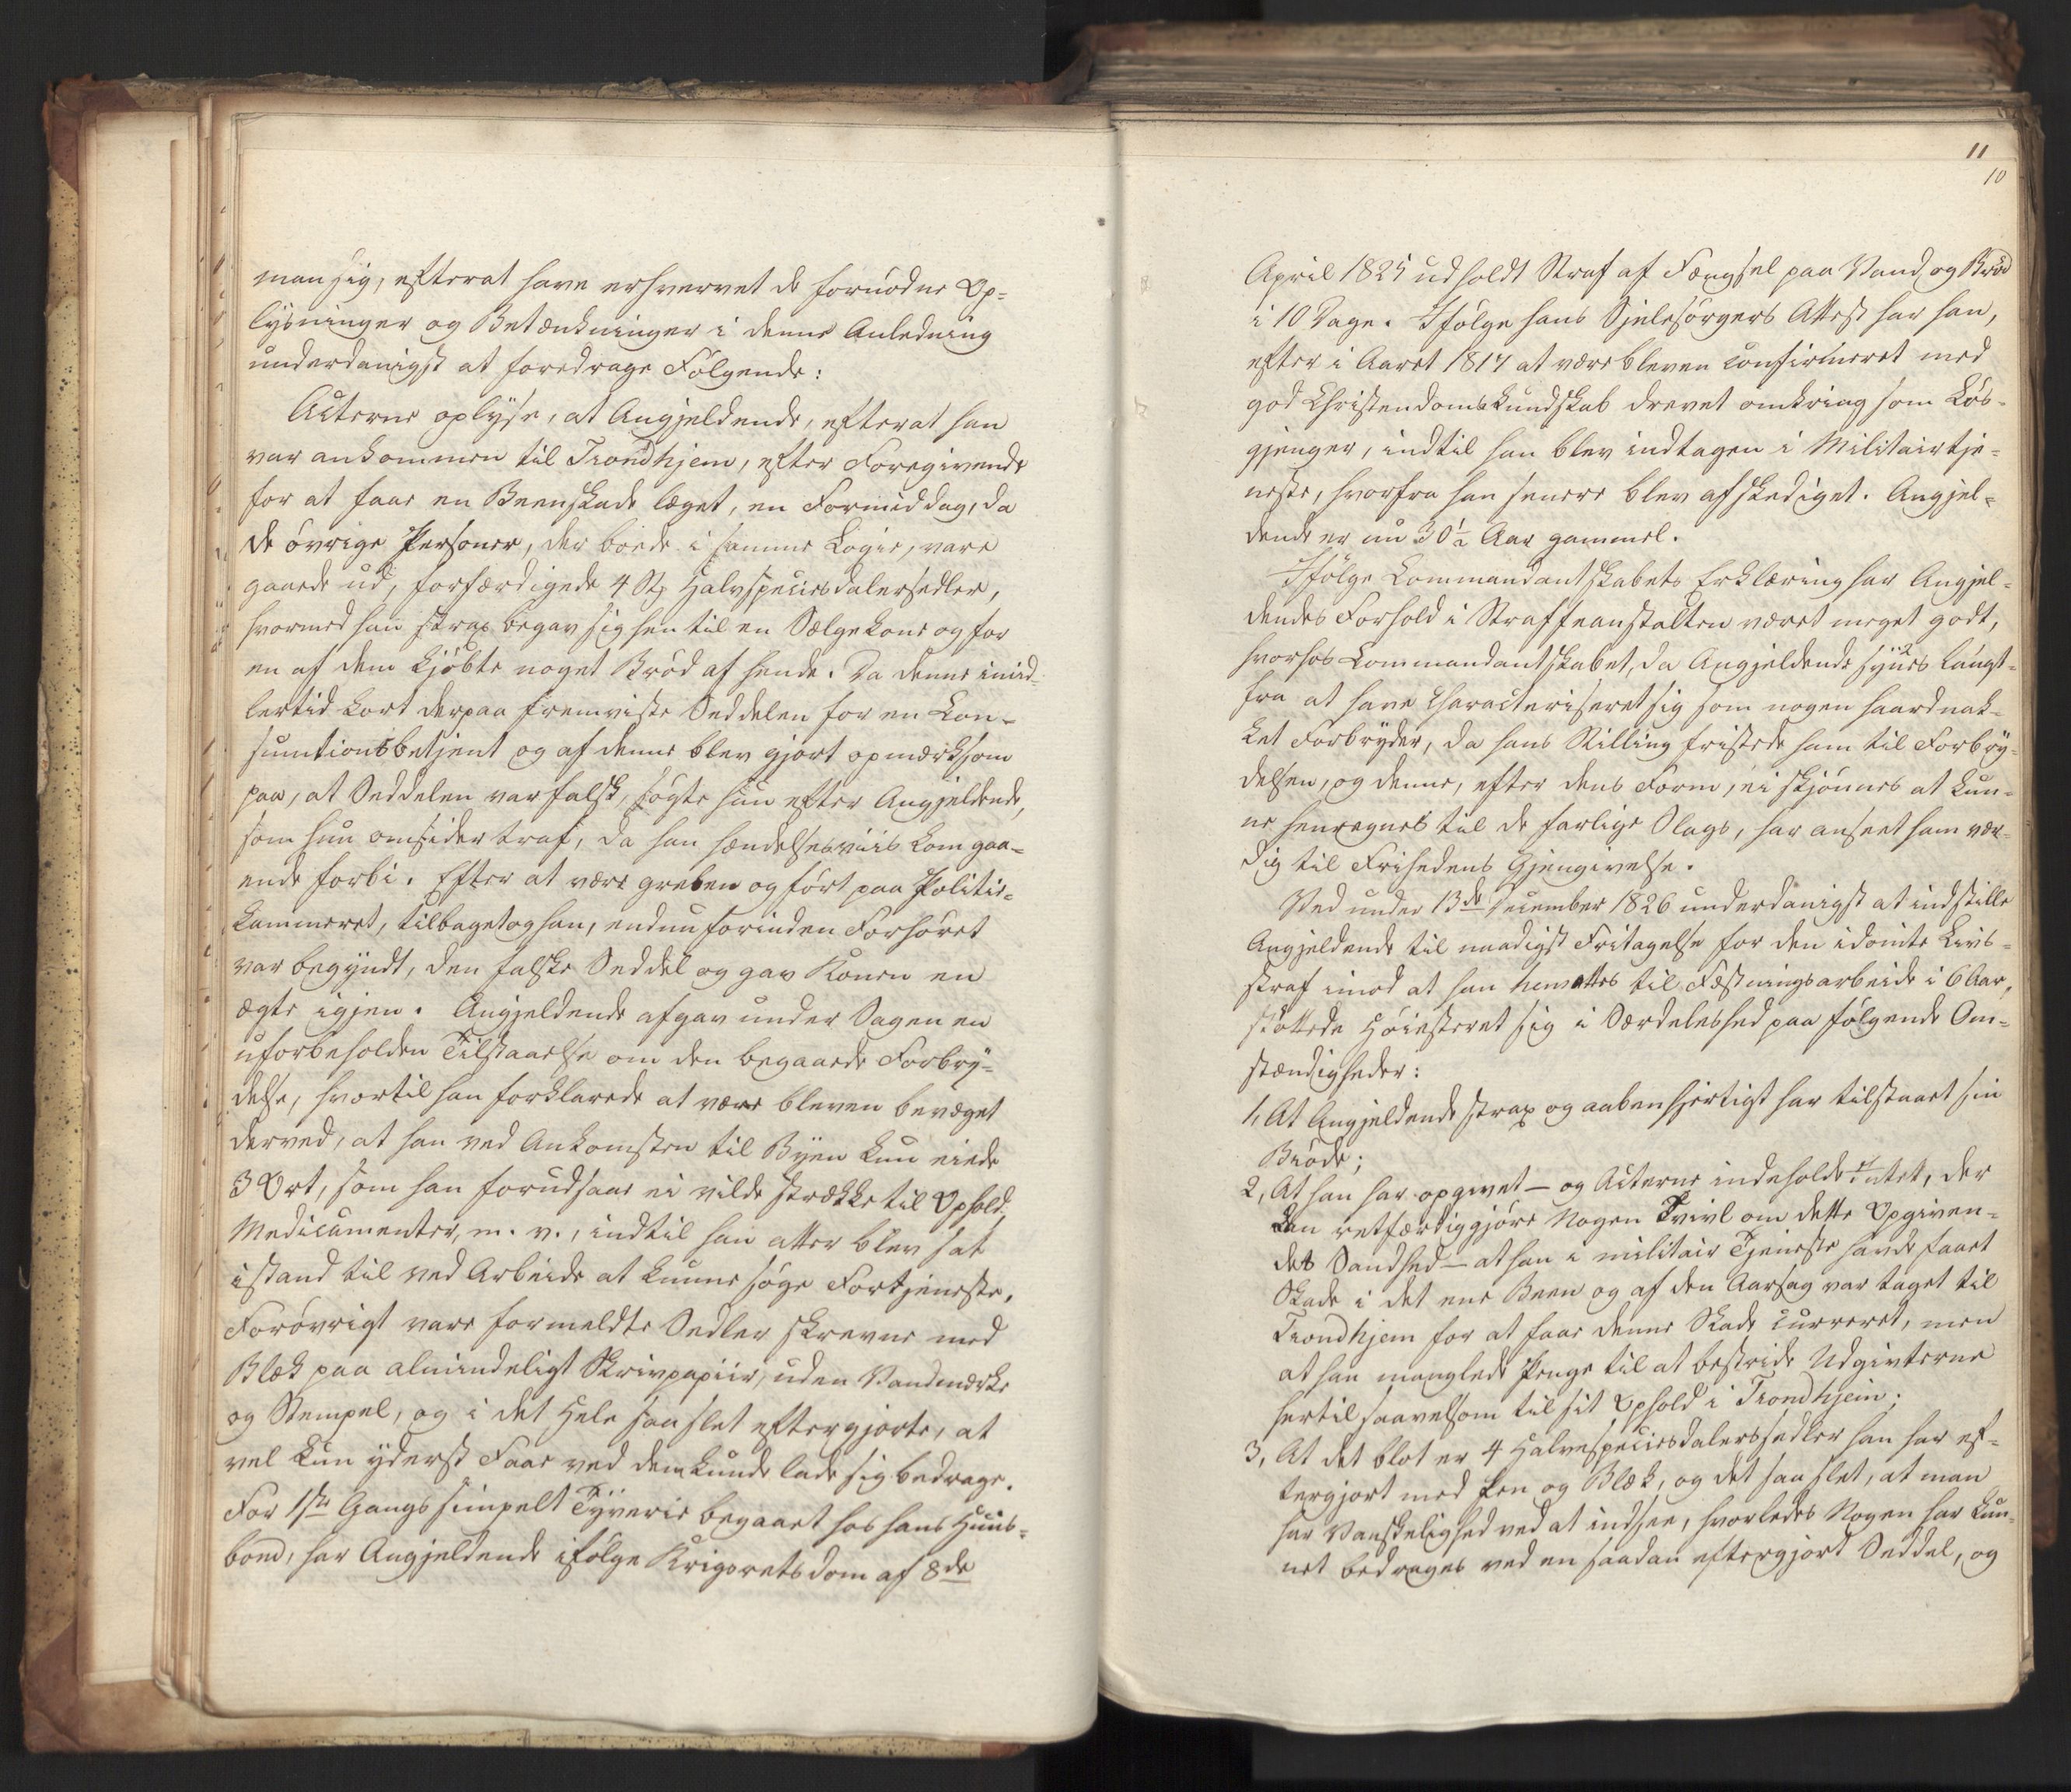 man sig, efterat have erhvervet de fornødne Op-
lysninger og Betænkninger i denne Anledning
underdanigst at foredrage Følgende:
Acterne oplyse, at Angjeldende, efterat han
var ankommen til Trondhjem, efter Foregivende
for at faae en Beenskade læget, en Formiddag, da
de øvrige Personer, der boede i samme Logie, vare
gaaede ud, forfærdigede 4 St. Halvspeciesdalersedler,
hvormed han strax begav sig hen til en Sælgekone og for
en af dem kjøbte noget Brød af hende. Da denne imid-
lertid kort derpaa fremviste Seddelen for en Con-
sumtionsbetjent og af denne blev gjort opmærksom
paa, at Seddelen var falsk, søgte hun efter Angjeldende,
som hun omsider traf, da han hændelsesviis kom gaa-
ende forbi. Efter at være greben og ført paa Politie-
kammeret, tilbagetog han, endnu forinden Forhøret
var begyndt, den falske Seddel og gav Konen en
ægte igjen. Angjeldende afgav under Sagen en
uforbeholden Tilstaaelse om den begaaede Forbry-
delse, hvortil han forklarede at være bleven bevæget
derved, at han ved Ankomsten til Byen kun eiede
3 Ort, som han forudsaae ei vilde strække til Ophold,
Medicamenter, m. v., indtil han atter blev sat
istand til ved Arbeide at kunne søge Fortjeneste.
Forøvrigt vare formeldte Sedler skrevne med
Blæk paa almindeligt Skrivpapiir, uden Vandmærke
og Stempel, og i det Hele saa slet eftergjorte, at
vel kun yderst Faae ved dem kunde lade sig bedrage.
For 1ste Gangs simpelt Tyverie begaaet hos hans Huus-
bond, har Angjeldende ifølge Krigsretsdom af 8de
11
10
April 1825 udholdt Straf af Fængsel paa Vand og Brød
i 10 Dage. Ifølge hans Sjelesørgers Attest har han,
efter i Aaret 1817 at være bleven confirmeret med
god Christendomskundskab drevet omkring som Løs-
gjenger, indtil han blev indtagen i Militairtje-
neste, hvorfra han senere blev afskediget. Angjel-
dende er nu 30½ Aar gammel.
Ifølge Commandantskabets Erklæring har Angjel-
dendes Forhold i Straffeanstalten været meget godt,
hvorhos Commandantskabet, da Angjeldende synes langt-
fra at have characteriseret sig som nogen haardnak-
ket Forbryder, da hans Stilling fristede ham til Forbry-
delsen, og denne, efter dens Form, ei skjønnes at kun-
ne henregnes til de farlige Slags, har anseet ham vær-
dig til Frihedens Gjengivelse.
Ved under 13de December 1826 underdanigst at indstille
Angjeldende til naadigst Fritagelse for den idømte Livs-
straf imod at han hensættes til Fæstningsarbeide i 6 Aar,
støttede Høiesteret sig i Særdeleshed paa følgende Om-
stændigheder:
1, At Angjeldende strax og aabenhjertigt har tilstaaet sin
Brøde;
2, At han har opgivet – og Acterne indeholde ei Intet, der
kan retfærdiggjøre Nogen Tvivl om dette Opgiven-
des Sandhed – at han i militair Tjeneste havde faaet
Skade i det ene Been og af den Aarsag var taget til
Trondhjem for at faae denne Skade curreret, men
at han manglede Penge til at bestride Udgivterne
hertil saavelsom til sit Ophold i Trondhjem;
3, At det blot er 4 Halvespeciesdalerssedler han har ef-
tergjort med Pen og Blæk, og det saa slet, at man
har Vanskelighed ved at indsee, hvorledes Nogen har kun-
net bedrages ved en saadan eftergjort Seddel, og